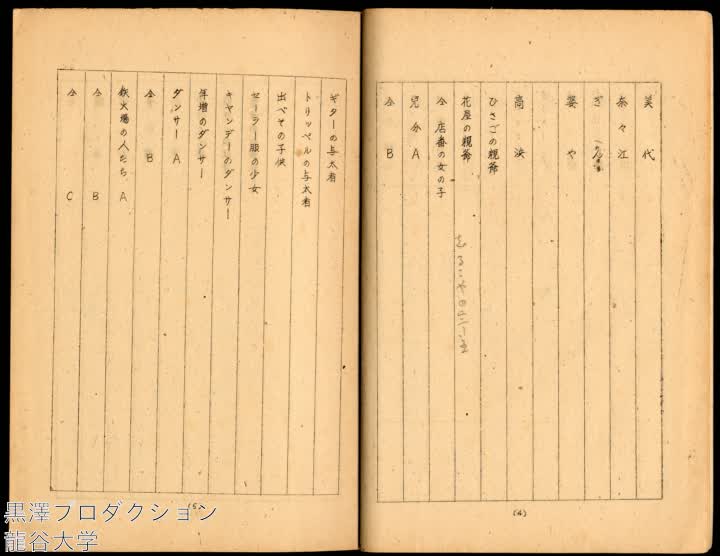 美代
奈々江
ぎん
婆や
高浜
ひさごの親爺
花屋の親爺
仝 店番の女の子
兄分A
仝 B
(4)
ギターの与太者
トリッペルの与太者
出べその子供
セーラー服の少女
キャンデーのダンサー
年増のダンサー
ダンサー A
仝 B
鉄火場の人たち A
仝 B
仝 C
(5)
黒澤プロダクション
龍谷大学